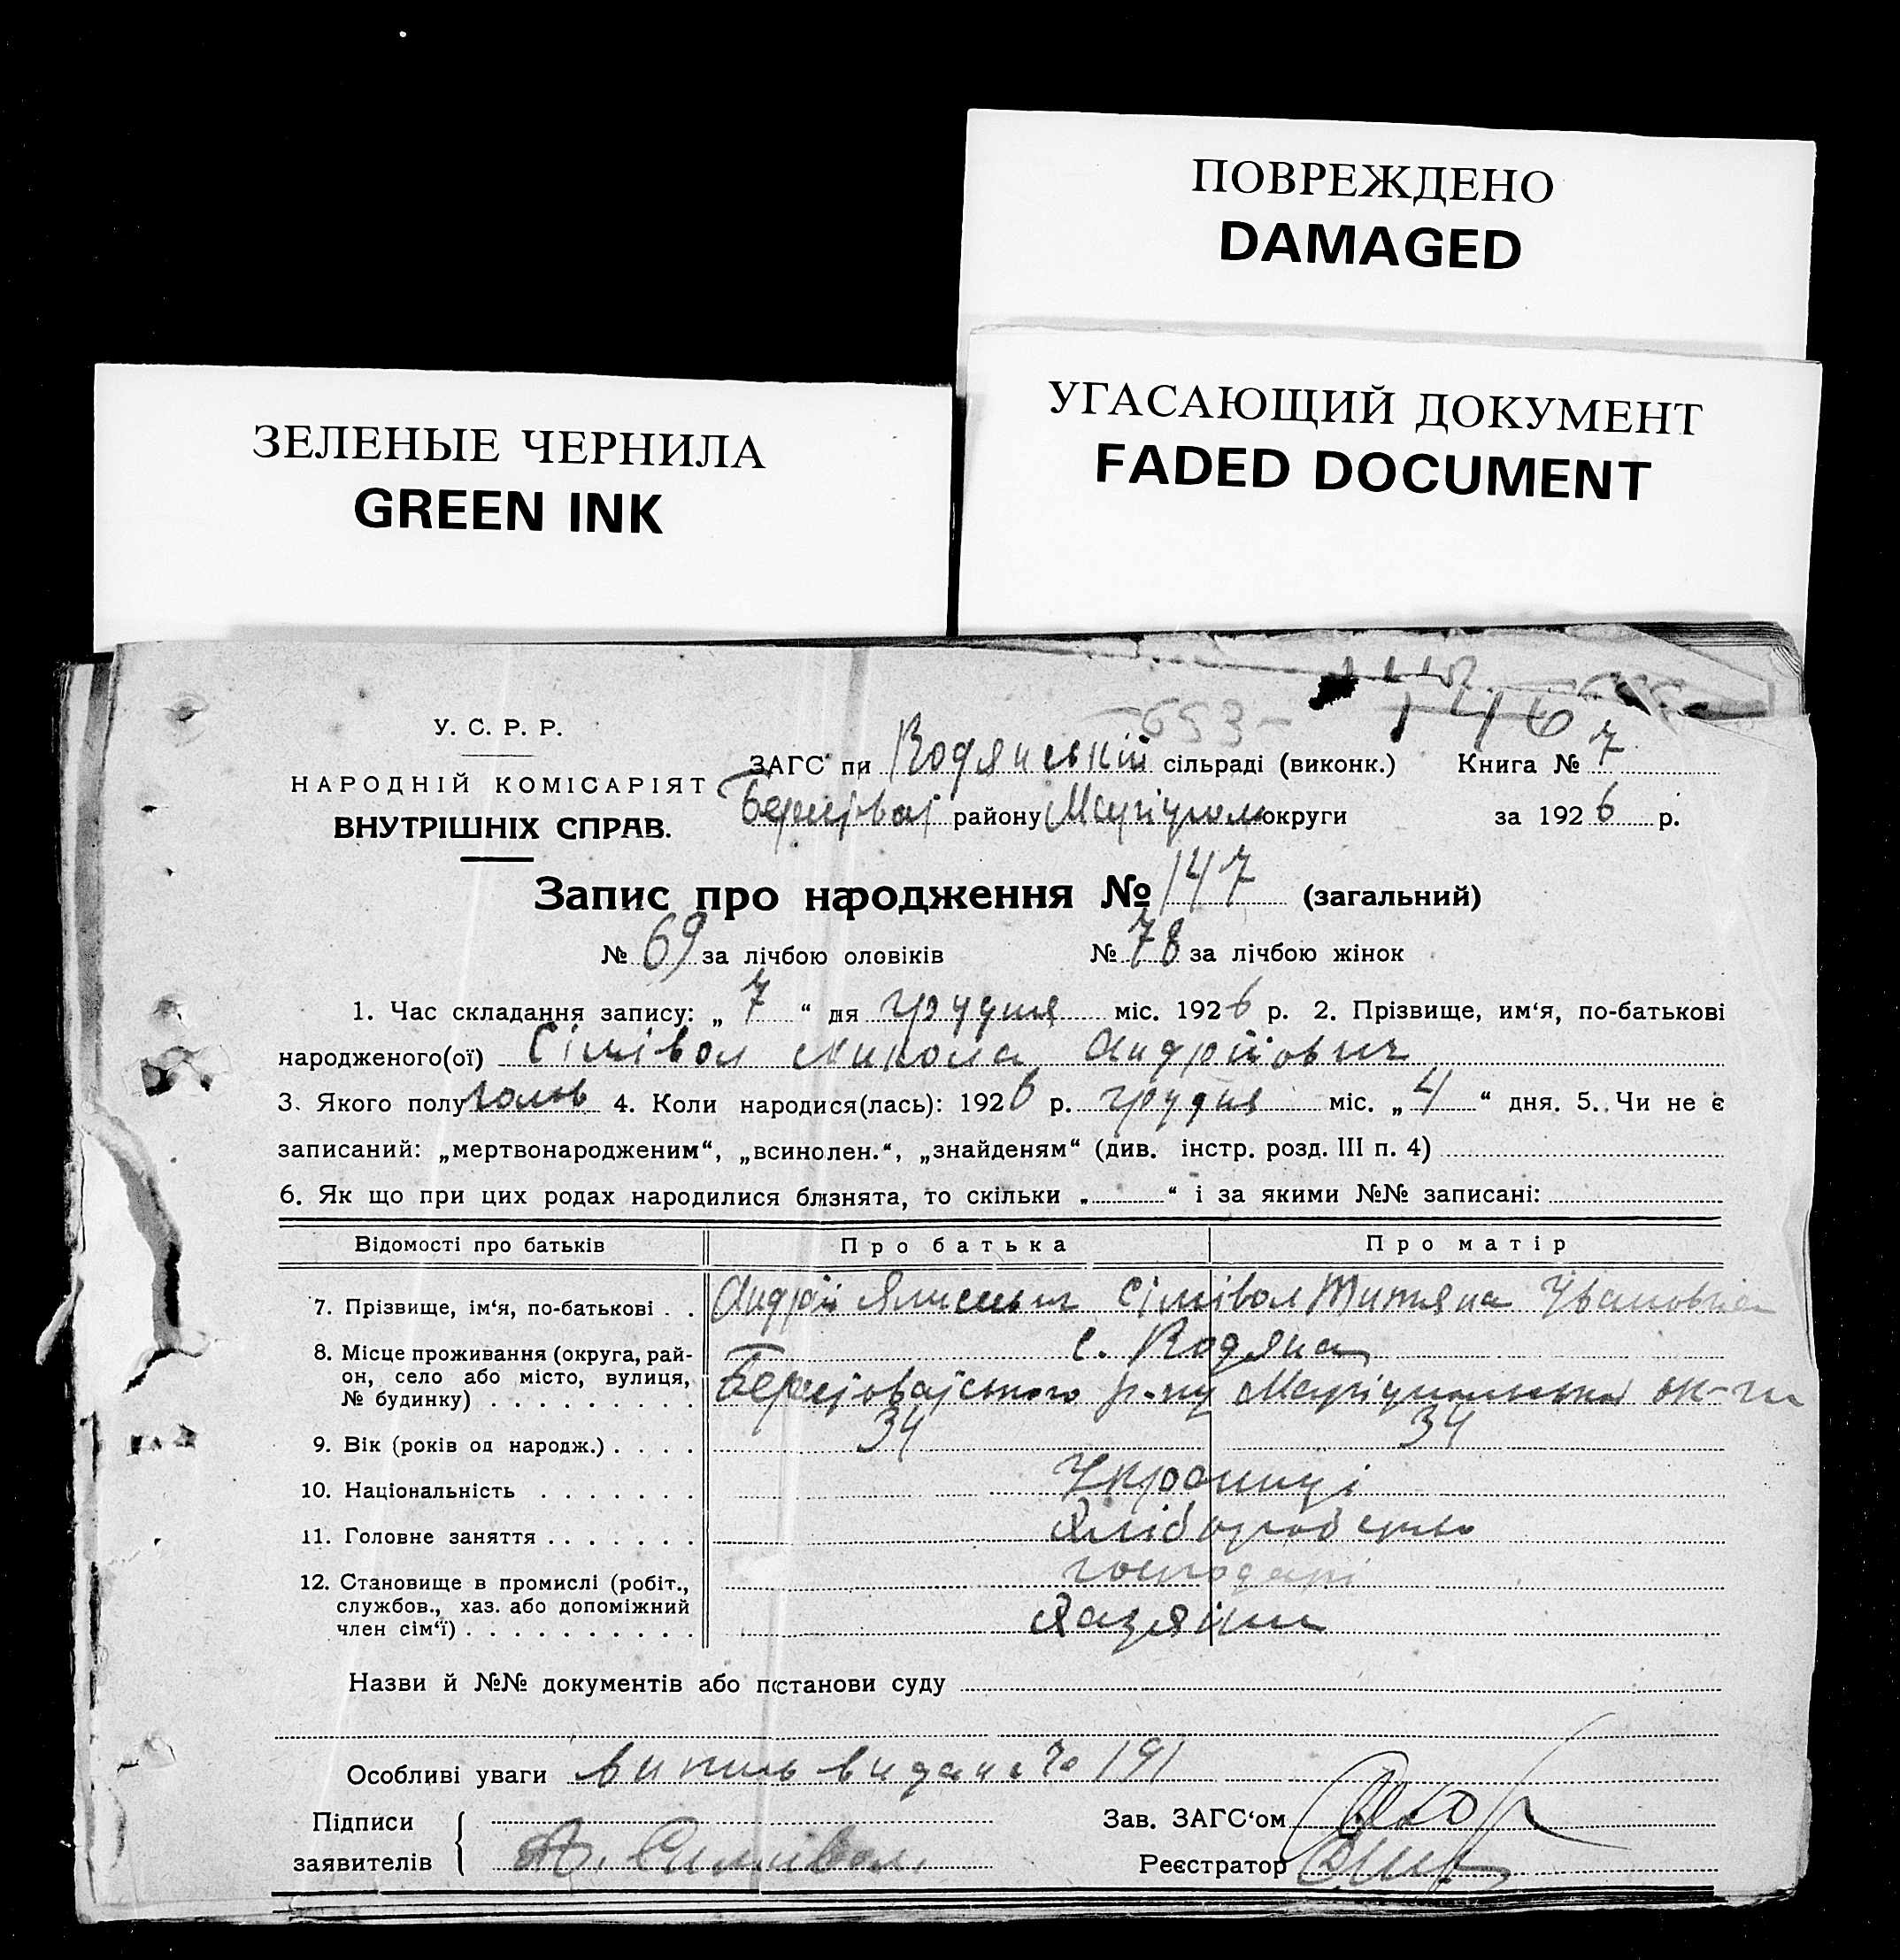 ПОВРЕЖДЕНО
DAMAGED
УГАСАЮЩИЙ ДОКУМЕНТ
FADED DOCUMENT
ЗЕЛЕНЫЕ ЧЕРНИЛА
GREEN INK
-653-
1467
У. С. Р. Р.
НАРОДНІЙ КОМІСАРІЯТ
ВНУТРІШНІХ СПРАВ.
ЗАГС пи Водянській сільраді (виконк.) Книга № 7
району Маріупол округи за 1926 р.
Запис про народження № 147 (загальний)
№ 69 за лічбою оловіків № 78 за лічбою жінок
1. Час складання запису: „ 7 “ дня грудня міс. 1926 р. 2. Прізвище, им‘я, по-батькові
народженого(ої) Сімівол Микола Андрійович
3. Якого полу 4. Коли народися(лась): 1926 р. грудня міс. „ 4 “ дня. 5. Чи не є
записаний: „мертвонародженим“, „всинолен.“, „знайденям“ (див. інстр. розд. III п. 4)
6. Як що при цих родах народилися близнята, то скільки „ “ і за якими №№ записані:
Відомості про батьків Про батька Про матір
7. Прізвище, ім‘я, по-батькові Андрій Сімівол Титяна Ивановна
8. Місце проживання (округа, рай-
он, село або місто, вулиця,
№ будинку)
с. Водяна
р-ну Маріупольської ок-ги
9. Вік (років од народж.) 34 34
10. Національність Українці
11. Головне заняття Хліборобство
господарі
12. Становище в промислі (робіт.,
службов., хаз. або допоміжний
член сім‘ї)
Хазяіни
Назви й №№ документів або постанови суду
Особливі уваги випись видана № 191
Підписи
заявителів А. Симивол.
Зав. ЗАГС‘ом
Реєстратор